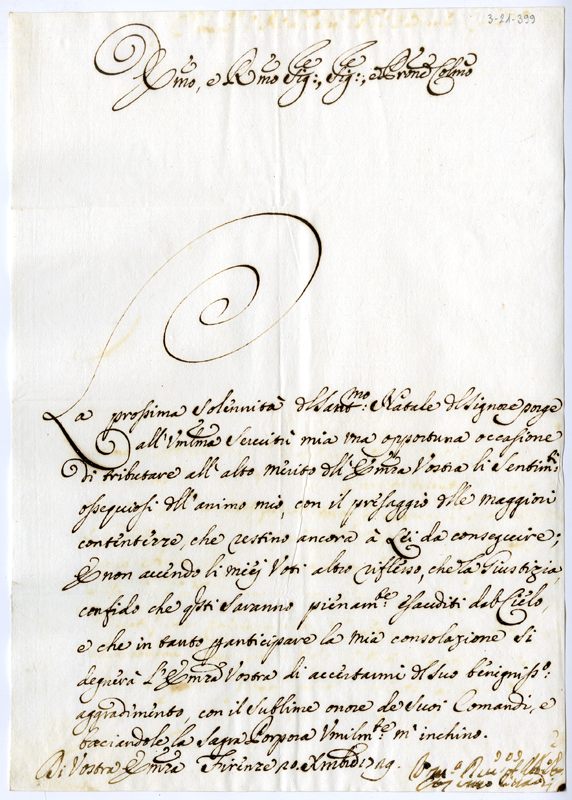 3-21-399
Emo, e Rmo Sig:re, Sig:re, e Prone Colmo
La prossima solennità del Sant:mo Natale del Signore porge
all'Vmilma Servitù mia vna opportuna occasione
di tributare all'alto merito dell'Emza Vostra li sentim:ti
ossequiosi dell'animo mio, con il presaggio delle maggiori
contentezze, che restino ancora à Lei da conseguire;
E non avendo li miej Voti altro riflesso, che la Giustizia,
confido che qsti saranno pienam:te esauditi dal Cielo,
e che in tanto p anticipare la mia consolazione si
degnerà l'Emza Vostra di accertarmi del suo benigniss:o
aggradimento, con il sublime onore de suoi Comandi, e
baciandole la Sagra Porpora Vmilm:te m'inchino.
Di Vostra Emza Firenze 20. Xmbre 1729.